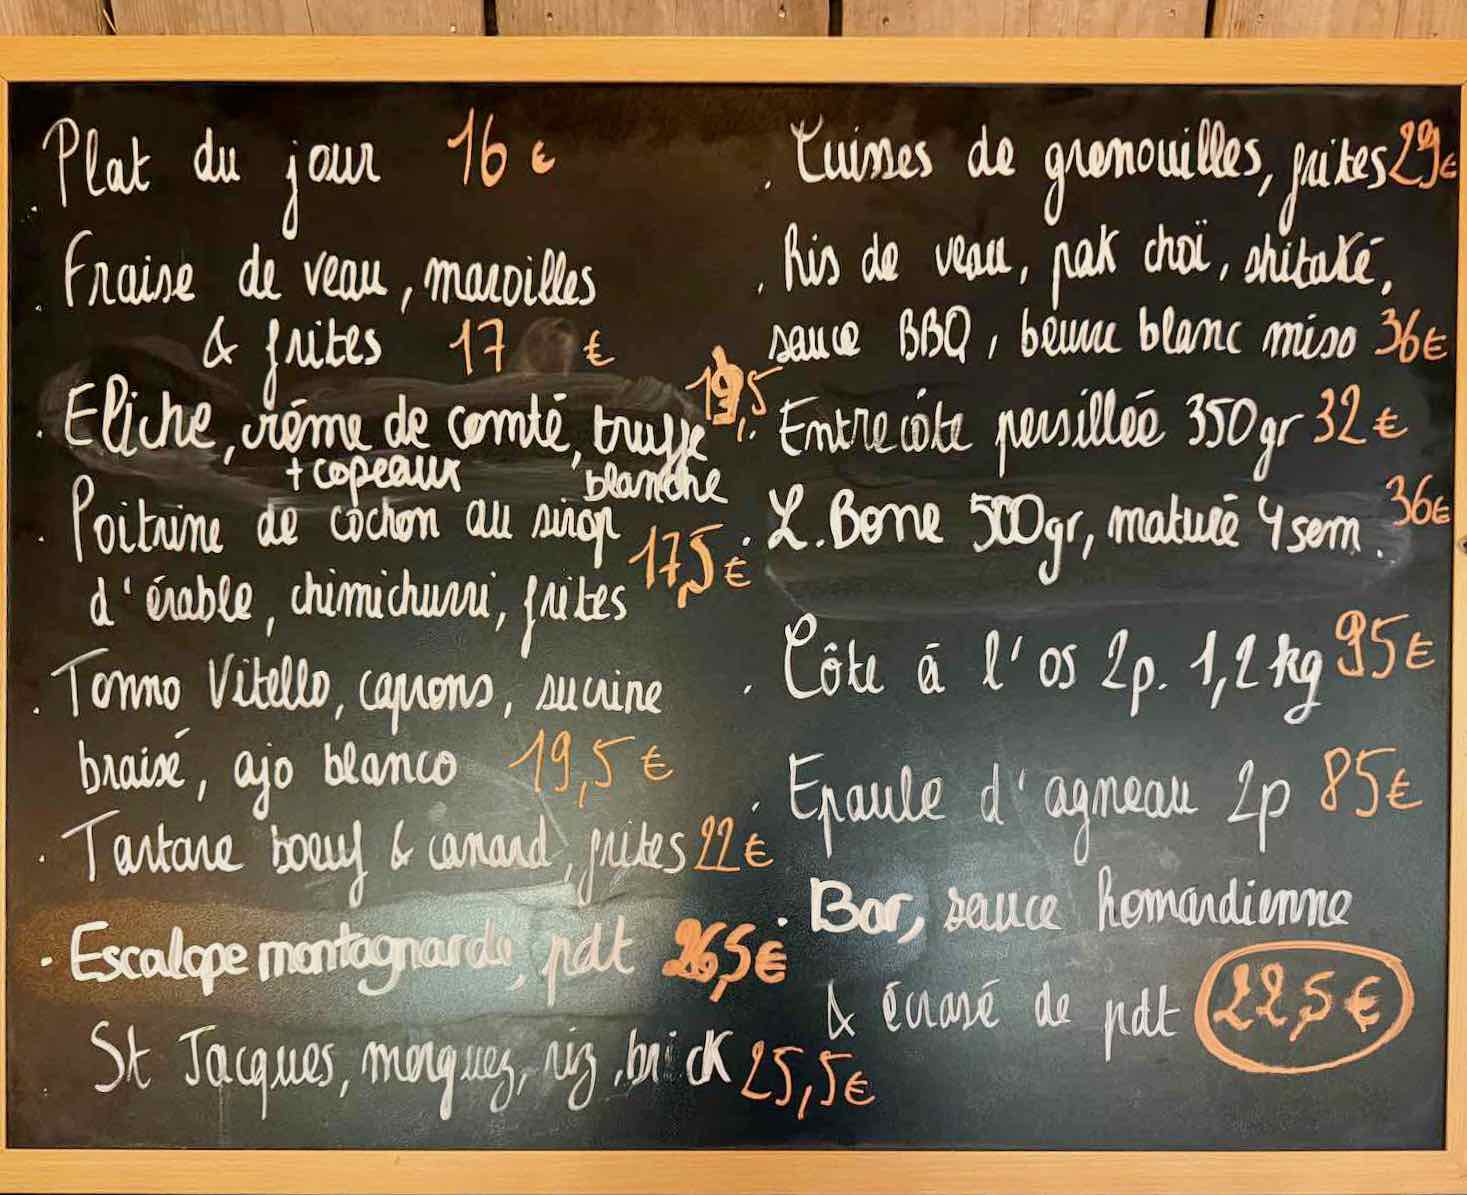 Plat du jour 16 €
Fraise de veau, maroilles
& frites 17 €
Eliche, crème de comté, truffe 19,5
+ copeaux blanche
Poitrine de cochon au sirop
d'érable, chimichurri, frites 17,5 €
Tonno Vitello, caprons, sucrine
braisé, ajo blanco 19,5 €
Tartare boeuf & canard, frites 22 €
Escalope montagnarde, pdt 26,5 €
St Jacques, merguez, riz, brick 25,5 €
Cuisses de grenouilles, frites 29 €
Ris de veau, pak choï, shitaké,
sauce BBQ, beurre blanc miso 36 €
Entrecôte persillée 350gr 32 €
L.Bone 500gr, maturé 4 sem. 36 €
Côte à l'os 2p. 1,2 kg 95 €
Epaule d'agneau 2p 85 €
Bar, sauce homardienne
& écrasé de pdt 22,5 €